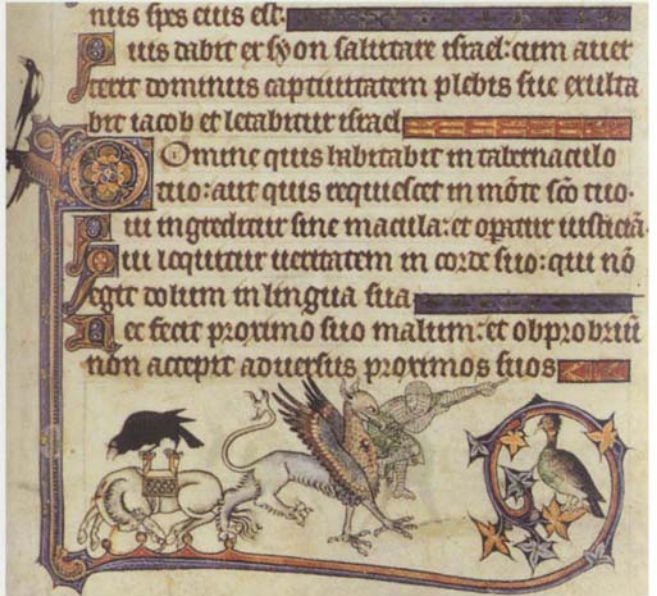 nus spes eius est.
Quis dabit ex syon salutare israel: cum auer
terit dominus captiuitatem plebis sue exulta
bit iacob et letabitur israel
Domine quis habitabit in tabernaculo
tuo: aut quis requiescet in mōte sc̄o tuo.
Qui ingreditur sine macula: et opatur iusticiā.
Qui loquitur ueritatem in corde suo: qui nō
egit dolum in lingua sua
Nec fecit proximo suo malum: et obprobriū
non accepit aduersus proximos suos